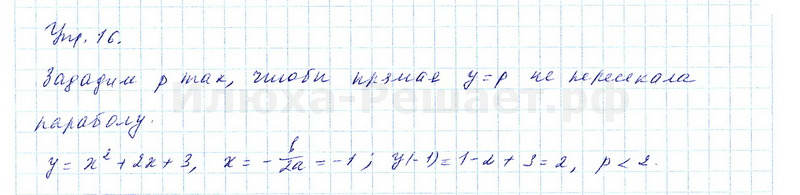 Упр. 16.
Зададим p так, чтобы прямая y=p не пересекала
параболу.
y = x² + 2x + 3, x = -b/2a = -1; y(-1) = 1-2+3 = 2, p < 2.
Илюха-Решает.рф